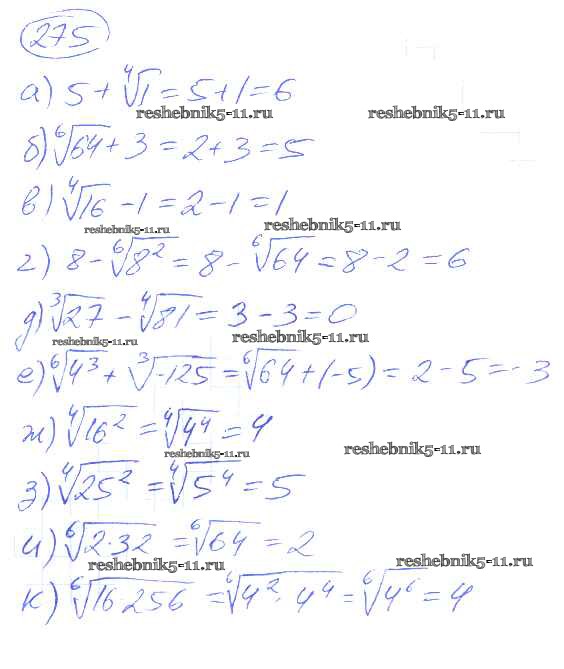 275
а) 5 + ⁴√1 = 5 + 1 = 6
reshebnik5-11.ru reshebnik5-11.ru
б) ⁶√64 + 3 = 2 + 3 = 5
в) ⁴√16 - 1 = 2 - 1 = 1
reshebnik5-11.ru reshebnik5-11.ru
г) 8 - ⁶√8² = 8 - ⁶√64 = 8 - 2 = 6
д) ³√27 - ⁴√81 = 3 - 3 = 0
reshebnik5-11.ru reshebnik5-11.ru
е) ⁶√4³ + ³√-125 = ⁶√64 + (-5) = 2 - 5 = -3
ж) ⁴√16² = ⁴√4⁴ = 4
reshebnik5-11.ru reshebnik5-11.ru
з) ⁴√25² = ⁴√5⁴ = 5
и) ⁶√2·32 = ⁶√64 = 2
reshebnik5-11.ru reshebnik5-11.ru
к) ⁶√16·256 = ⁶√4²·4⁴ = ⁶√4⁶ = 4